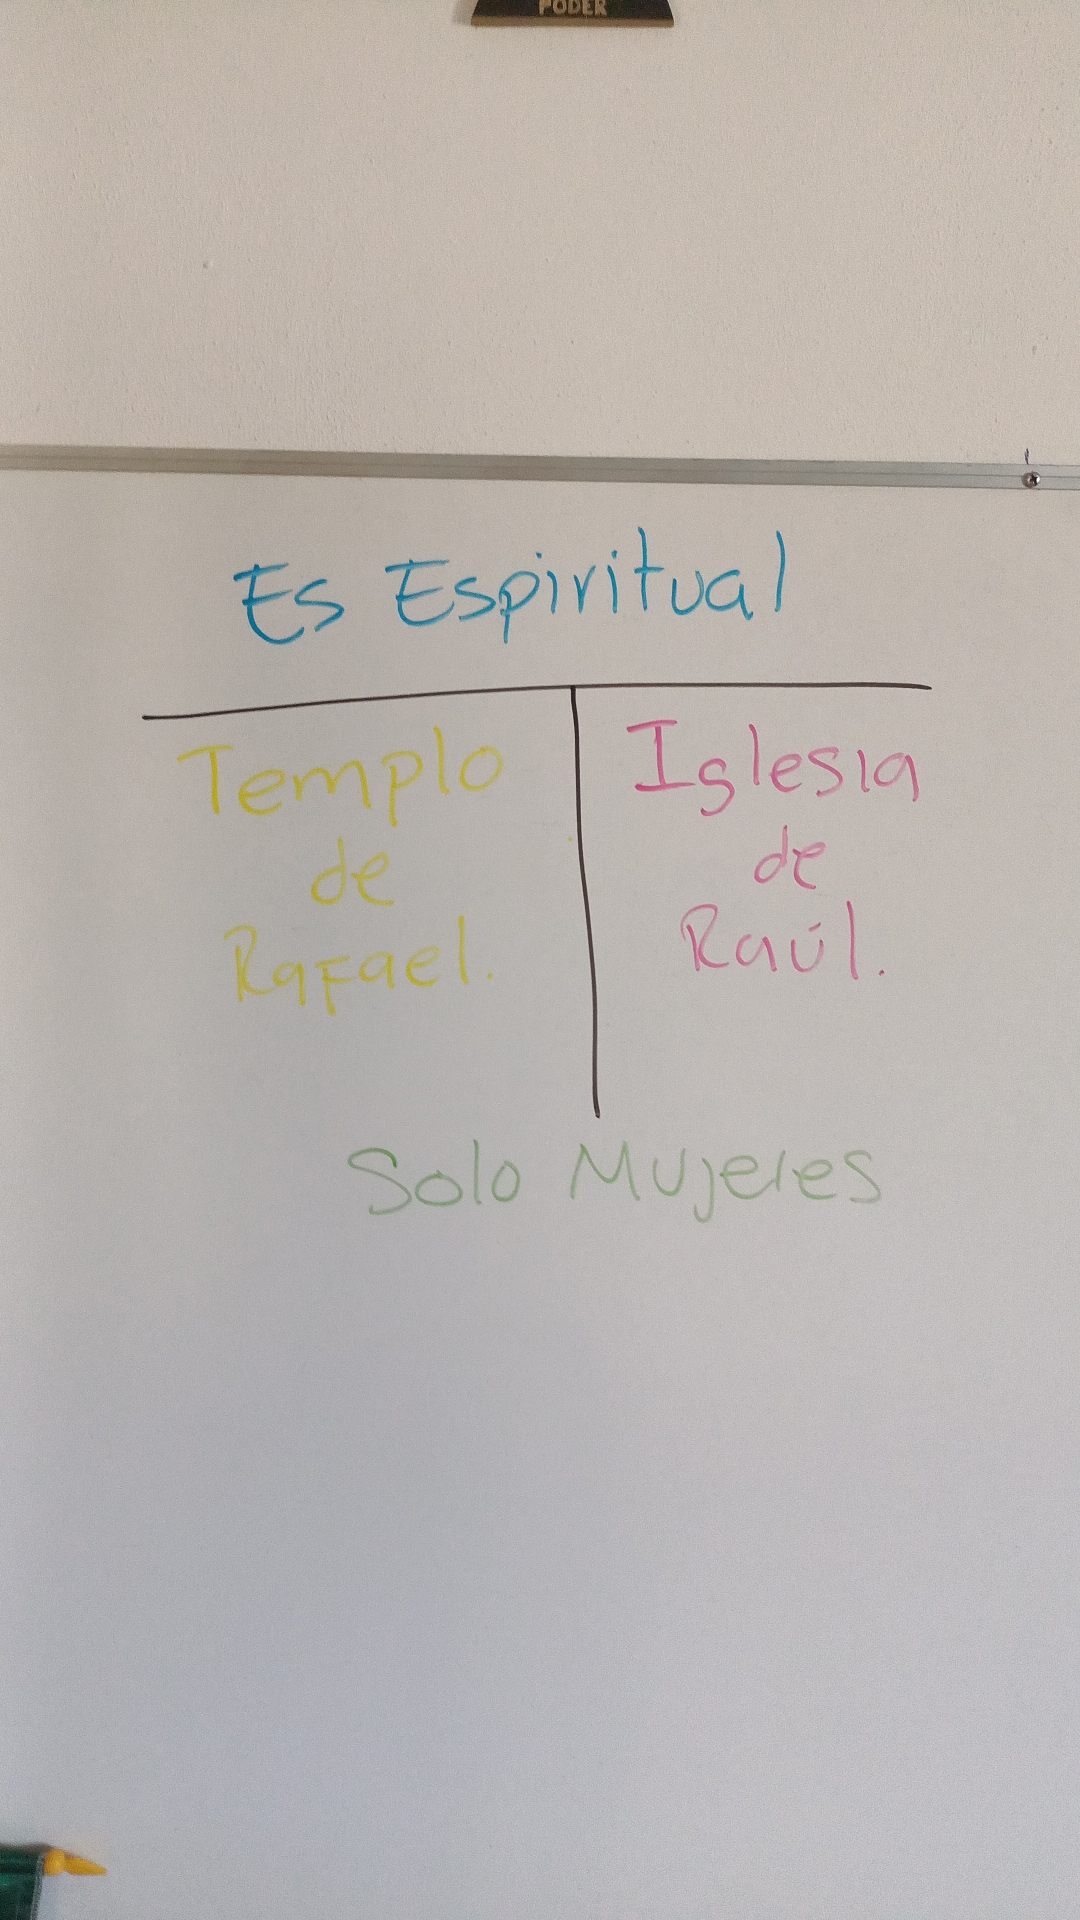 PODER
Es Espiritual
Templo
de
Rafael.
Iglesia
de
Raúl.
Solo Mujeres